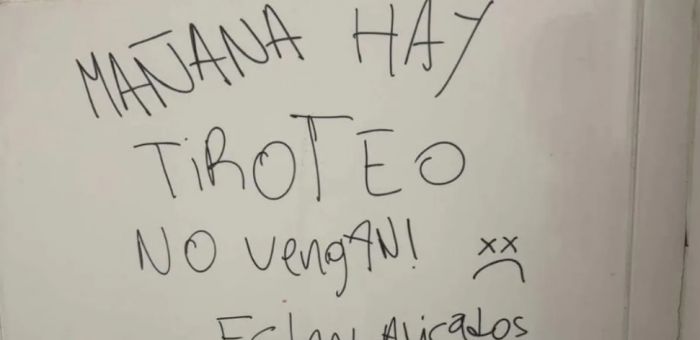 MAÑANA HAY
TiROTEO
NO VengAN!
xx
AViSados